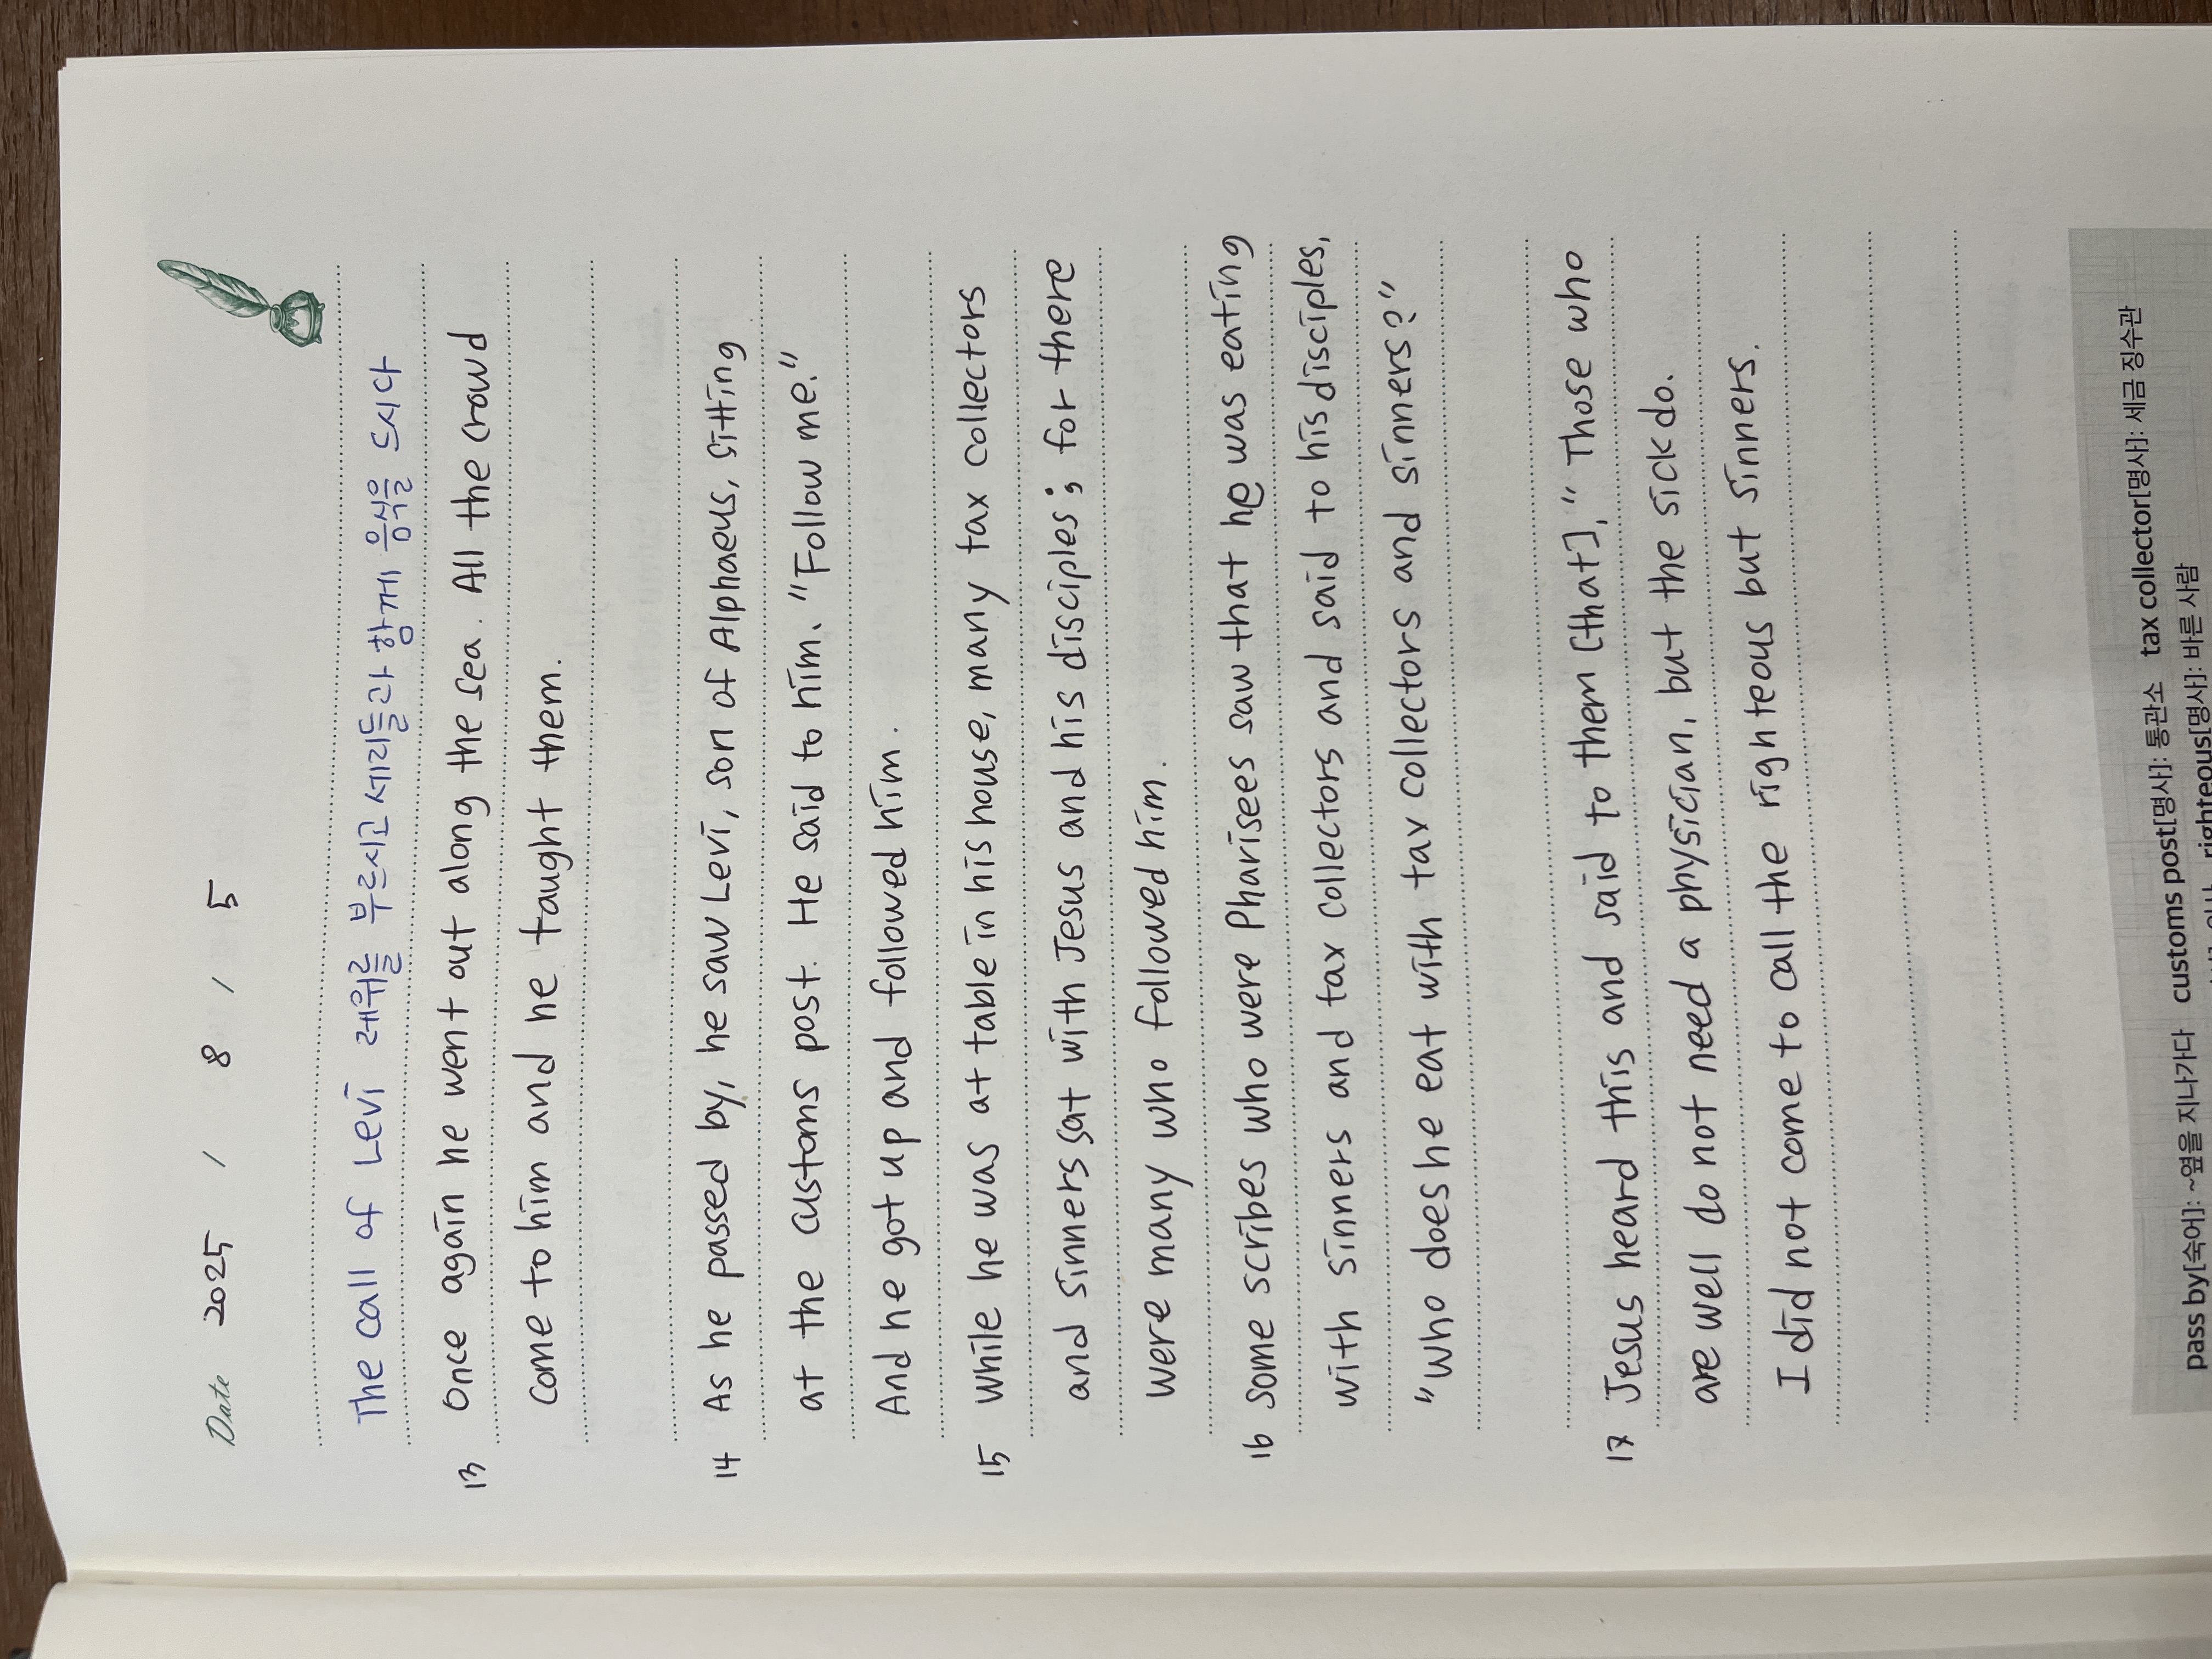 Date 2025 / 8 / 5
The call of Levi 레위를 부르시고 세리들과 함께 음식을 드시다
13 Once again he went out along the sea. All the crowd
come to him and he taught them.
14 As he passed by, he saw Levi, son of Alphaeus, sitting
at the customs post. He said to him. "Follow me."
And he got up and followed him.
15 While he was at table in his house, many tax collectors
and sinners sat with Jesus and his disciples ; for there
were many who followed him.
16 Some scribes who were Pharisees saw that he was eating
with sinners and tax collectors and said to his disciples,
"Who does he eat with tax collectors and sinners?"
17 Jesus heard this and said to them [that], "Those who
are well do not need a physician, but the sick do.
I did not come to call the righteous but sinners.
pass by[숙어]: ~옆을 지나가다 customs post[명사]: 통관소 tax collector[명사]: 세금 징수관
righteous[명사]: 바른 사람